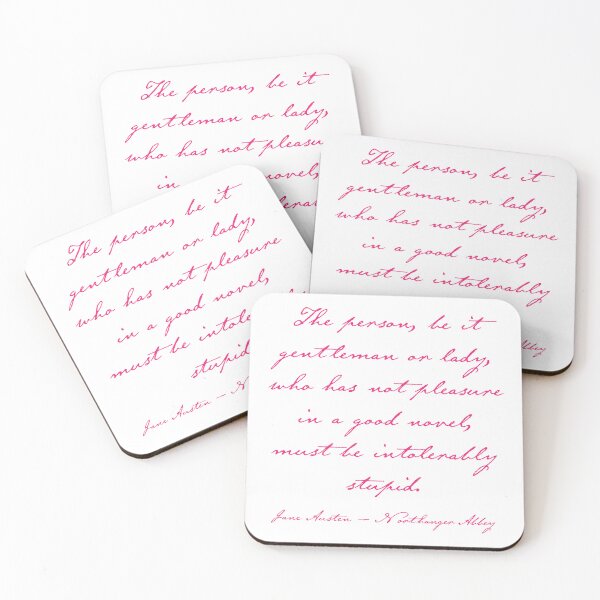 The person, be it
gentleman or lady,
who has not pleasu
in
novel,
The person, be it
gentleman or lady,
who has not pleasure
in a good novel,
must be intolerably
Abbey
The person, be it
gentleman or lady,
who has not pleasure
in a good novel,
must be intole
stupid
Jane Austen —
The person, be it
gentleman or lady,
who has not pleasure
in a good novel,
must be intolerably
stupid.
Jane Austen — Northanger Abbey